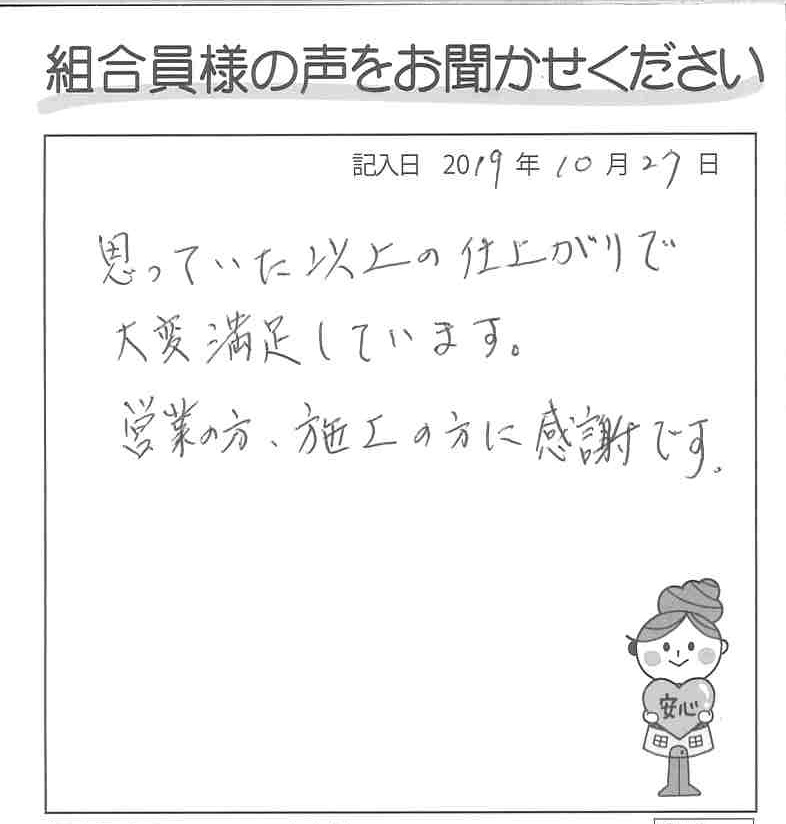 組合員様の声をお聞かせください
記入日 2019年10月27日
思っていた以上の仕上がりで
大変満足しています。
営業の方、施工の方に感謝です。
安心